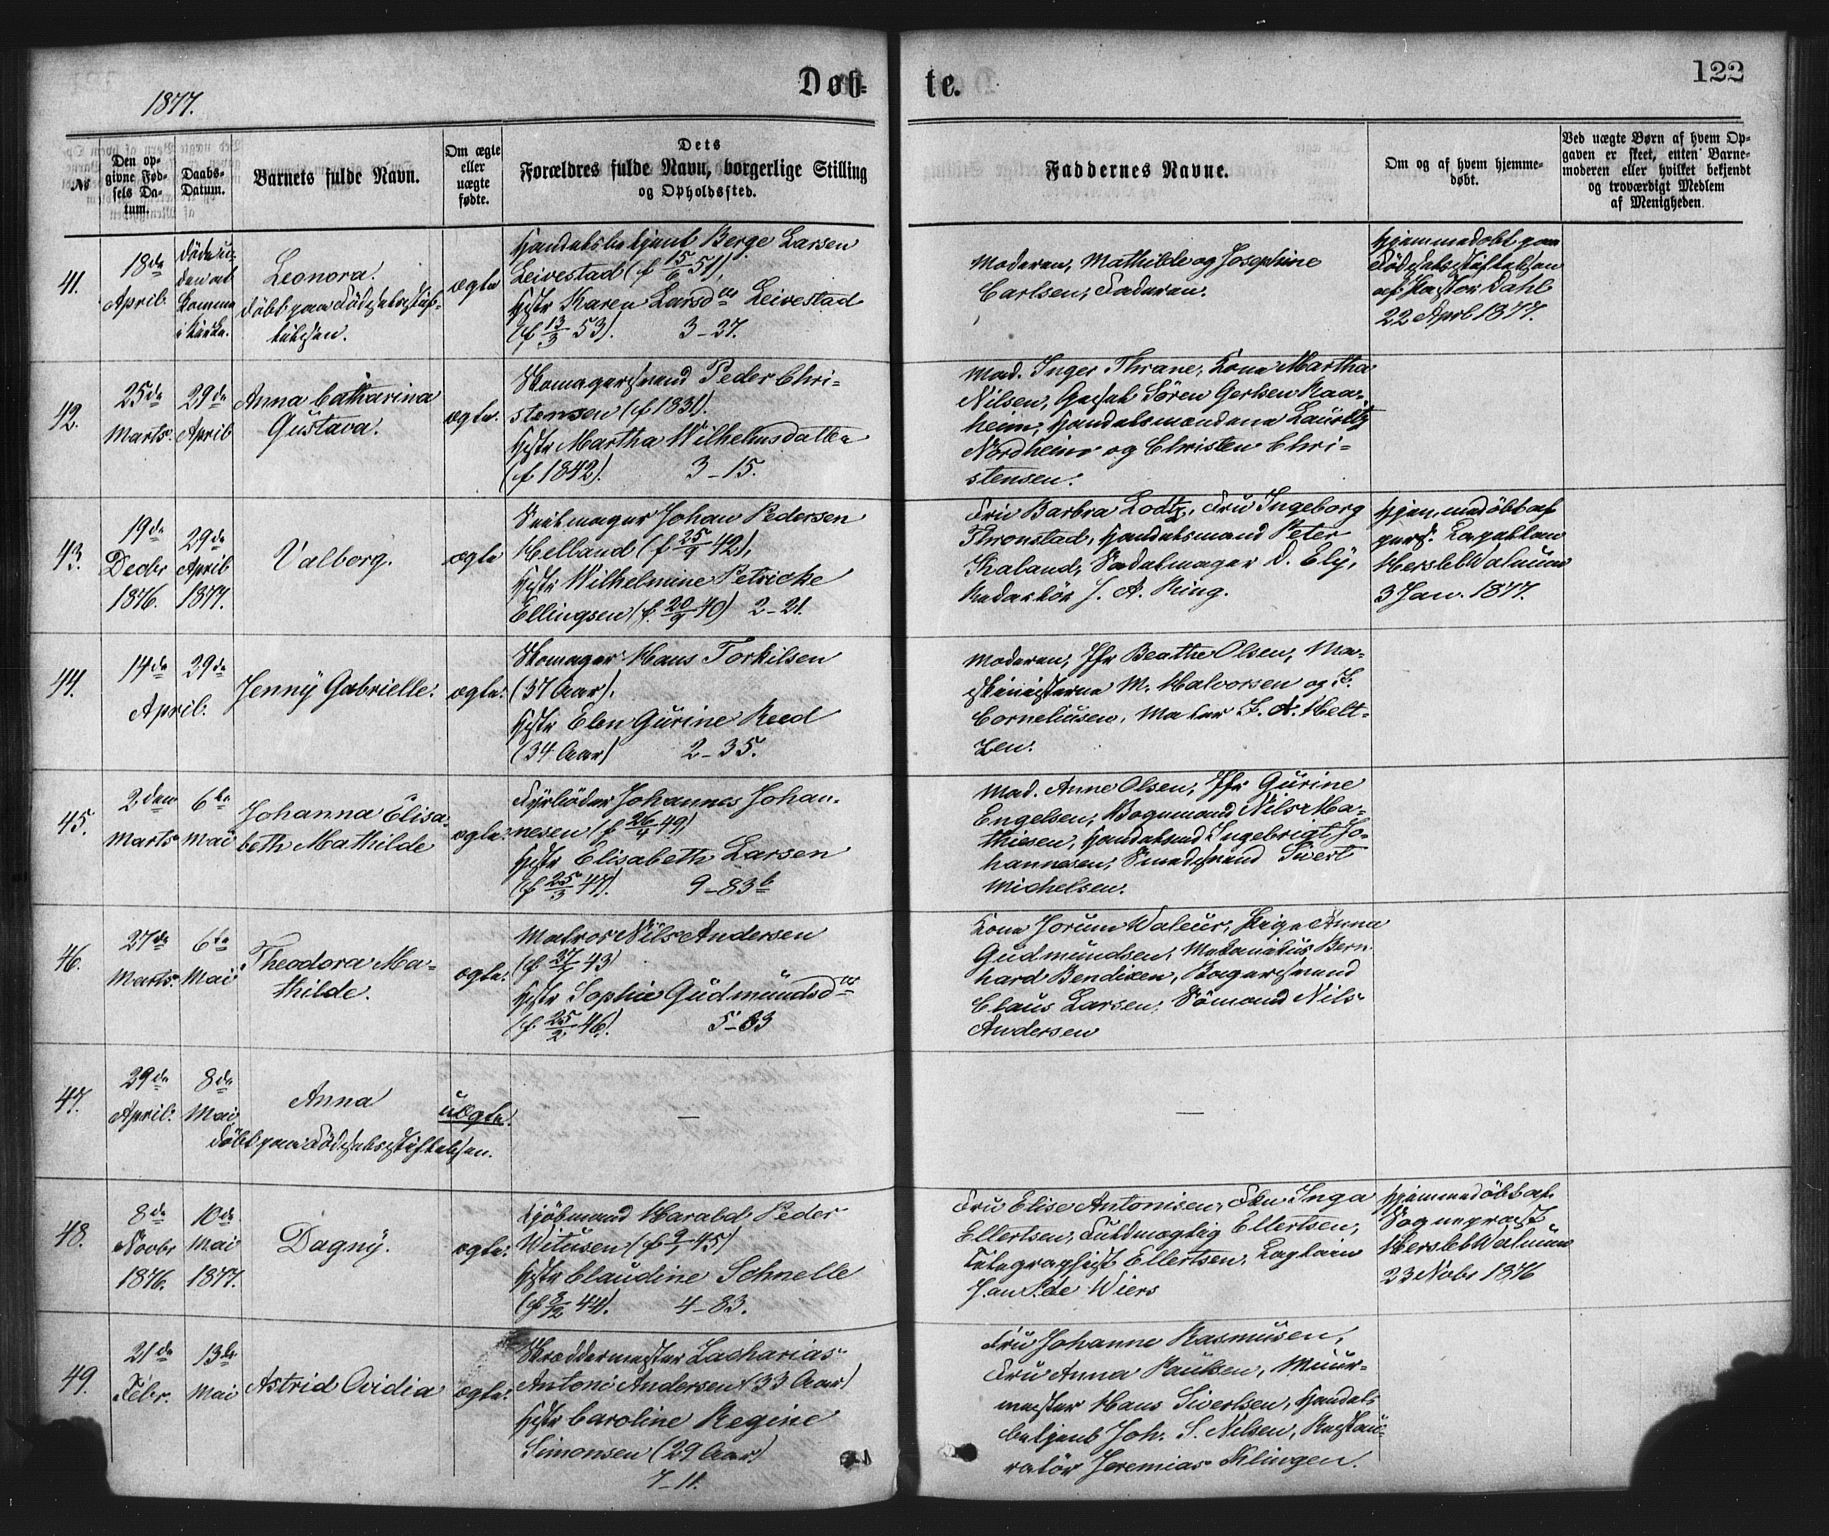 1877.
Døb-
te.
122
№
Den op-
givne Fød-
sels Da-
tum.
Daabs-
Datum.
Barnets fulde Navn.
Om ægte
eller
uægte
fødte.
Dets
Forældres fulde Navn, borgerlige Stilling
og Opholdssted.
Faddernes Navne.
Om og af hvem hjemme-
døbt.
Ved uægte Børn af hvem Op-
gaven er skeet, enten Barne-
moderen eller hvilket bekjendt
og troværdigt Medlem
af Menigheden.
41.
18de
April
døde u-
den at
komme
i Kirke.
Leonora.
døbt paa Fødselsstif-
telsen.
ægte
Handelsbetjent Berge Larsen
Leivestad (f 15/6 51),
Hstr Karen Larsdtr Leivestad
(f 13/3 53). 3-27.
Moderen, Mathilde og Josephine
Carlsen, Faderen.
Hjemmedøbt paa
Fødselsstiftelsen
af Pastor Dahl
22 Apl 1877.
42.
25de
Marts
29de
April
Anna Catharina
Gustava.
ægte.
Skomagersvend Peder Chri-
stensen (f 1831).
Hstr Martha Wilhelmsdatter
(f 1842). 3-15.
Mad. Inger Thrane, Kone Martha
Nilsen, Gaselt Søren Gertsen Raa-
heim, Handelsmændene Lauritz
Nordheim og Christen Chri-
stensen.
43.
19de
Decbr
1876.
29de
April
1877.
Valborg.
ægte
Seilmager Johan Pedersen
Helland (f 25/9 42),
Hstr Wilhelmine Petricke
Ellingsen (f. 20/9 40) 2-21.
Fru Barbra Lodtz, Fru Ingeborg
Thronstad, Handelsmand Peter
Skaland, Sadelmager D. Ely,
Redaktør J. A. Ring.
Hjemmedøbt af
pers. Kapellan
Hersleb Walnum
3 Jan. 1877.
44.
14de
29de
April.
Jenny Gabrielle.
ægte.
Skomager Hans Torkilsen
(37 Aar).
Hstr Elen Gurine Reed
(34 Aar) 2-35.
Moderen, Jfr Beathe Olsen, Ma-
skinisterne M. Halvorsen og
Corneliusen, Maler J. A. Helt-
zen.
45.
2den
Marts
6te
Mai
Johanna Elisa-
beth Mathilde
ægte.
Fyrbøder Johannes Johan-
nesen (f 26/4 49)
Hstr Elisabeth Larsen
(f 25/3 47). 9-83b
Mad. Anne Olsen, Jfr Gurine
Engelsen, Bogmand Nils Ma-
thiesen, Handelsmd Ingebrigt Jo-
hannesen, Smedsvend Sivert
Michelsen.
46.
27de
Marts
6te
Mai
Theodora Ma-
thilde.
ægte.
Matros Nils Andersen
43
Hstr Sophie Gudmundsdtr
(f. 25/2 46). 5-83
Kone Jorum Waleur, Pige Anna
Gudmundsen, Mekanikus Bern-
hard Bendixen, Bagersvend
Claus Larsen, Sømand Nils
Andersen
47.
29de
April.
8de
Mai
Anna
Døbt paa Fødselsstiftelsen.
uægte.
—
—
48.
8de
Novbr
1876.
10de
Mai
1877.
Dagny.
ægte.
Kjøbmand Harald Peder
Witusen 45)
Hstr Claudine Schnelle
(f 44). 4-83.
Fru Elise Antonisen, Frkn Inga
Ellertsen, Fuldmægtig Ellertsen,
Telegraphist Ellertsen, Kaptain
Jan P. de Wiers
Hjemmedøbt af
Sognepræst
Hersleb Walnum
23 Nobr 1876
49.
21de
Febr.
13de
Mai
Astrid Ovidia
ægte.
Skræddermester Zacharias
Antoni Andersen (33 Aar)
Hstr Caroline Regine
Simonsen (29 Aar)
7-11.
Fru Johanne Rasmusen,
Fru Anna Paulsen, Muur-
mester Hans Sivertsen, Handels-
betjent Joh. S. Nilsen, Restau-
ratør Jeremias Klingen.